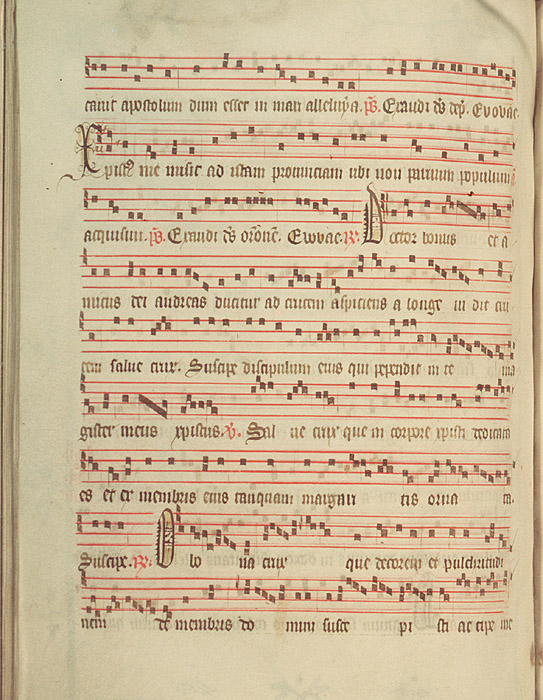 cavit apostolum dum esset in mari alleluya. ps. Exaudi ds dep. Evovae.
Xpistus me misit ad istam provinciam ubi non parvum populum
acquisivi. ps. Exaudi ds oronē. Evovae. R. Doctor bonus et a
micus dei andreas ducitur ad crucem aspiciens a longe vi dit cru
cem salve crux. Suscipe discipulum eius qui pependit in te ma
gister meus xpistus. V. Sal ve crux que in corpore xpisti dedicata
es et ex membris eius tamquam margari tis orna ta.
Suscipe. R. O bo na crux que decorem et pulchritudi
nem de membris do mini susce pi sti ac cipe me